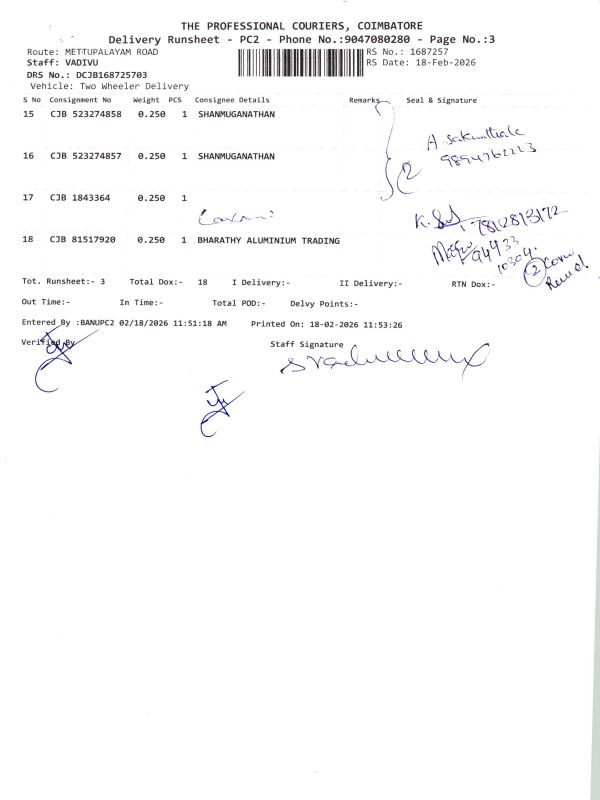 THE PROFESSIONAL COURIERS, COIMBATORE
Delivery Runsheet - PC2 - Phone No.:9047080280 - Page No.:3
Route: METTUPALAYAM ROAD
RS No.: 1687257
Staff: VADIVU
RS Date: 18-Feb-2026
DRS No.: DCJB168725703
Vehicle: Two Wheeler Delivery
S No Consignment No Weight PCS Consignee Details Remarks Seal & Signature
15 CJB 523274858 0.250 1 SHANMUGANATHAN
A Sakunthala
9894762223
16 CJB 523274857 0.250 1 SHANMUGANATHAN
2
17 CJB 1843364 0.250 1
7812813172
18 CJB 81517920 0.250 1 BHARATHY ALUMINIUM TRADING
94433
10304.
2
Tot. Runsheet:- 3 Total Dox:- 18 I Delivery:- II Delivery:- RTN Dox:-
Out Time:- In Time:- Total POD:- Delvy Points:-
Entered By :BANUPC2 02/18/2026 11:51:18 AM Printed On: 18-02-2026 11:53:26
Verified By Staff Signature